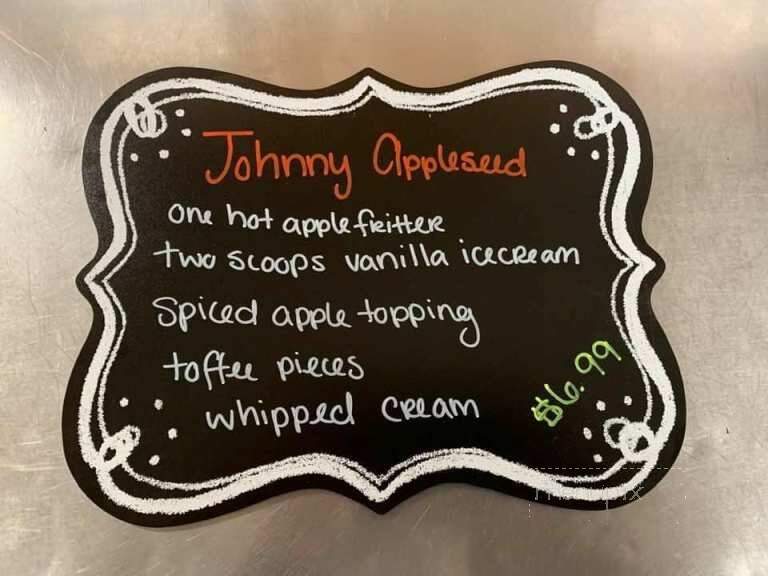 Johnny Appleseed
one hot apple fritter
two scoops vanilla icecream
Spiced apple topping
toffee pieces
whipped cream
$6.99